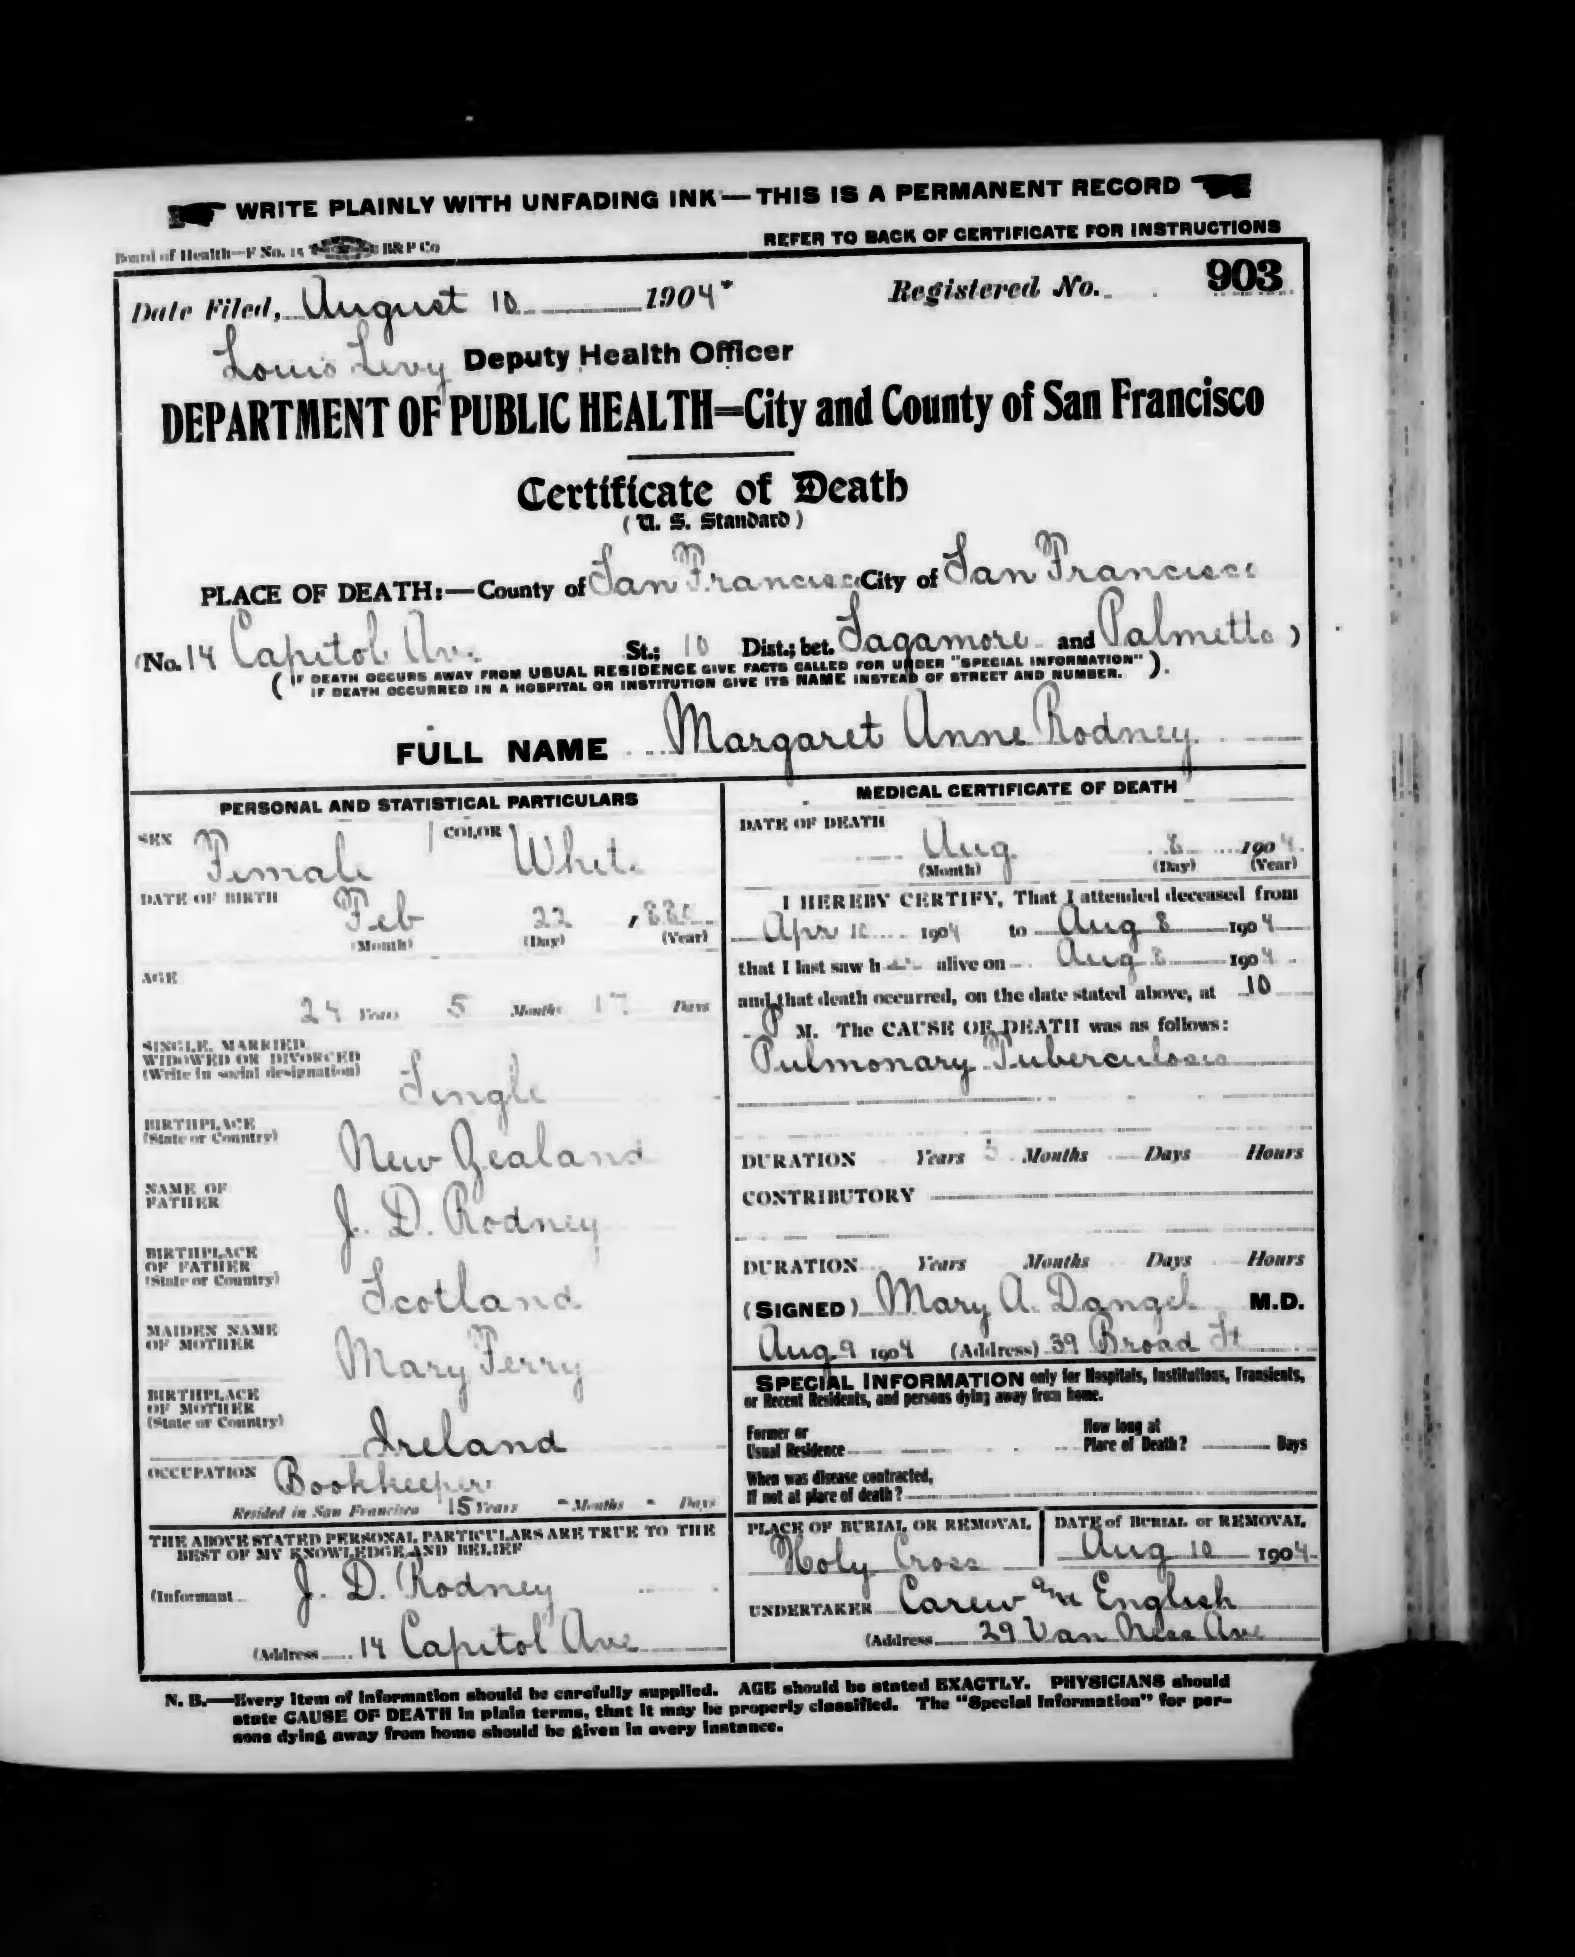 WRITE PLAINLY WITH UNFADING INK — THIS IS A PERMANENT RECORD
Board of Health—F No. 15 B&P Co
REFER TO BACK OF CERTIFICATE FOR INSTRUCTIONS
Date Filed, August 10 1904
Registered No. 903
Louis Levy Deputy Health Officer
DEPARTMENT OF PUBLIC HEALTH=City and County of San Francisco
Certificate of Death
(U. S. Standard)
PLACE OF DEATH:—County of San Francisco City of San Francisco
(No. 14 Capitol Av. St.; 10 Dist.; bet. Sagamore and Palmetto )
( IF DEATH OCCURS AWAY FROM USUAL RESIDENCE GIVE FACTS CALLED FOR UNDER "SPECIAL INFORMATION" ).
IF DEATH OCCURRED IN A HOSPITAL OR INSTITUTION GIVE ITS NAME INSTEAD OF STREET AND NUMBER.
FULL NAME Margaret Anne Rodney
PERSONAL AND STATISTICAL PARTICULARS
SEX Female COLOR White
DATE OF BIRTH Feb 22
(Month) (Day) (Year)
AGE
24 Years 5 Months 17 Days
SINGLE, MARRIED,
WIDOWED OR DIVORCED
(Write in social designation)
Single
BIRTHPLACE
(State or Country)
New Zealand
NAME OF
FATHER
J. D. Rodney
BIRTHPLACE
OF FATHER
(State or Country)
Scotland
MAIDEN NAME
OF MOTHER
Mary Ferry
BIRTHPLACE
OF MOTHER
(State or Country)
Ireland
OCCUPATION Bookkeeper
Resided in San Francisco 15 Years - Months - Days
THE ABOVE STATED PERSONAL PARTICULARS ARE TRUE TO THE
BEST OF MY KNOWLEDGE AND BELIEF
(Informant J. D. Rodney
(Address 14 Capitol Ave
MEDICAL CERTIFICATE OF DEATH
DATE OF DEATH
Aug. 8 1904
(Month) (Day) (Year)
I HEREBY CERTIFY, That I attended deceased from
Apr 10 1904 to Aug 8 1904
that I last saw her alive on Aug 8 1904
and that death occurred, on the date stated above, at 10
P M. The CAUSE OF DEATH was as follows:
Pulmonary Tuberculosis
DURATION Years 5 Months Days Hours
CONTRIBUTORY
DURATION Years Months Days Hours
(SIGNED) Mary A. Dangel M.D.
Aug 9 1904 (Address) 39 Broad St
SPECIAL INFORMATION only for Hospitals, Institutions, Transients,
or Recent Residents, and persons dying away from home.
Former or
Usual Residence
How long at
Place of Death? Days
When was disease contracted,
If not at place of death?
PLACE OF BURIAL OR REMOVAL
Holy Cross
DATE of BURIAL or REMOVAL
Aug 10 1904
UNDERTAKER Carew and English
(Address 29 Van Ness Ave
N. B.—Every item of information should be carefully supplied. AGE should be stated EXACTLY. PHYSICIANS should
state CAUSE OF DEATH in plain terms, that it may be properly classified. The "Special Information" for per-
sons dying away from home should be given in every instance.